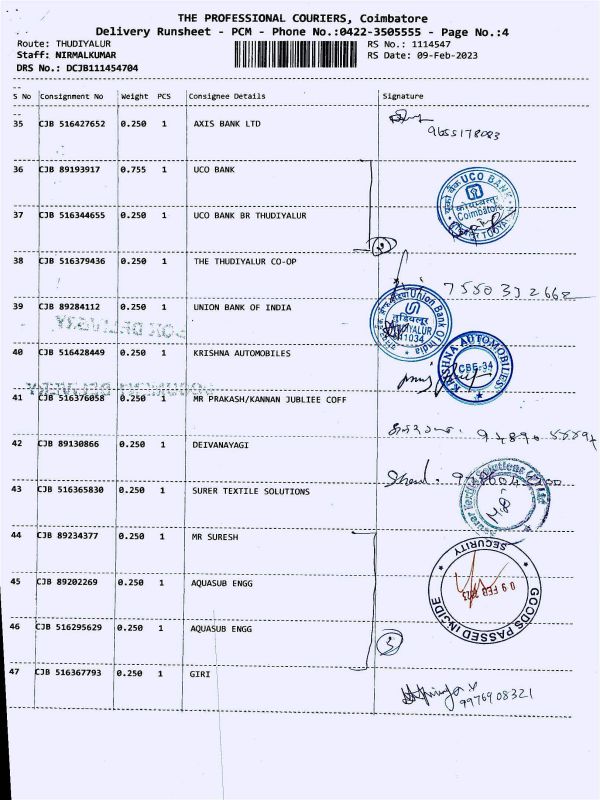 THE PROFESSIONAL COURIERS, Coimbatore
Delivery Runsheet - PCM - Phone No.:0422-3505555 - Page No.:4
Route: THUDIYALUR RS No.: 1114547
Staff: NIRMALKUMAR RS Date: 09-Feb-2023
DRS No.: DCJB111454704
S No Consignment No Weight PCS Consignee Details Signature
35 CJB 516427652 0.250 1 AXIS BANK LTD
9655178083
36 CJB 89193917 0.755 1 UCO BANK
UCO BANK
Coimbatore
37 CJB 516344655 0.250 1 UCO BANK BR THUDIYALUR
2
38 CJB 516379436 0.250 1 THE THUDIYALUR CO-OP
7550392662
39 CJB 89284112 0.250 1 UNION BANK OF INDIA
Union Bank of India
FOR DELIVERY
40 CJB 516428449 0.250 1 KRISHNA AUTOMOBILES
KRISHNA AUTOMOBILES
CBE-34
DOCUMENT DELIVERY
41 CJB 516376058 0.250 1 MR PRAKASH/KANNAN JUBLIEE COFF
42 CJB 89130866 0.250 1 DEIVANAYAGI
43 CJB 516365830 0.250 1 SURER TEXTILE SOLUTIONS
44 CJB 89234377 0.250 1 MR SURESH
SECURITY
09 FEB 2023
GOODS PASSED INSIDE
45 CJB 89202269 0.250 1 AQUASUB ENGG
46 CJB 516295629 0.250 1 AQUASUB ENGG
3
47 CJB 516367793 0.250 1 GIRI
9976908321